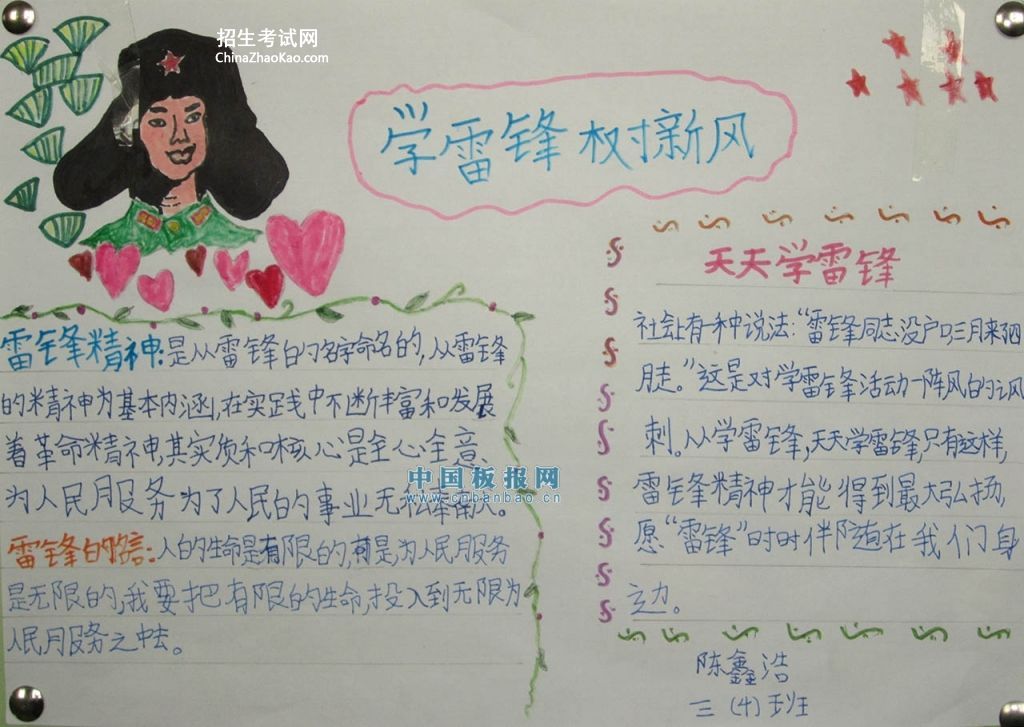 招生考试网
ChinaZhaoKao.com
学雷锋树新风
雷锋精神:是从雷锋的名字命名的,从雷锋
的精神为基本内涵,在实践中不断丰富和发展
着革命精神,其实质和核心是全心全意、
为人民服务 为了人民的事业无私奉献。
雷锋的话:人的生命是有限的,可是,为人民服务
是无限的,我要把有限的生命,投入到无限为
人民服务之中去。
天天学雷锋
社会上有一种说法:“雷锋同志没户口,三月来四
月走。”这是对学雷锋活动一阵风的讽
刺。从学雷锋,天天学雷锋,只有这样,
雷锋精神才能得到最大弘扬,
愿“雷锋”时时伴随在我们身
边。
陈鑫浩
三(4)班
中国板报网
www.cnbanbao.cn